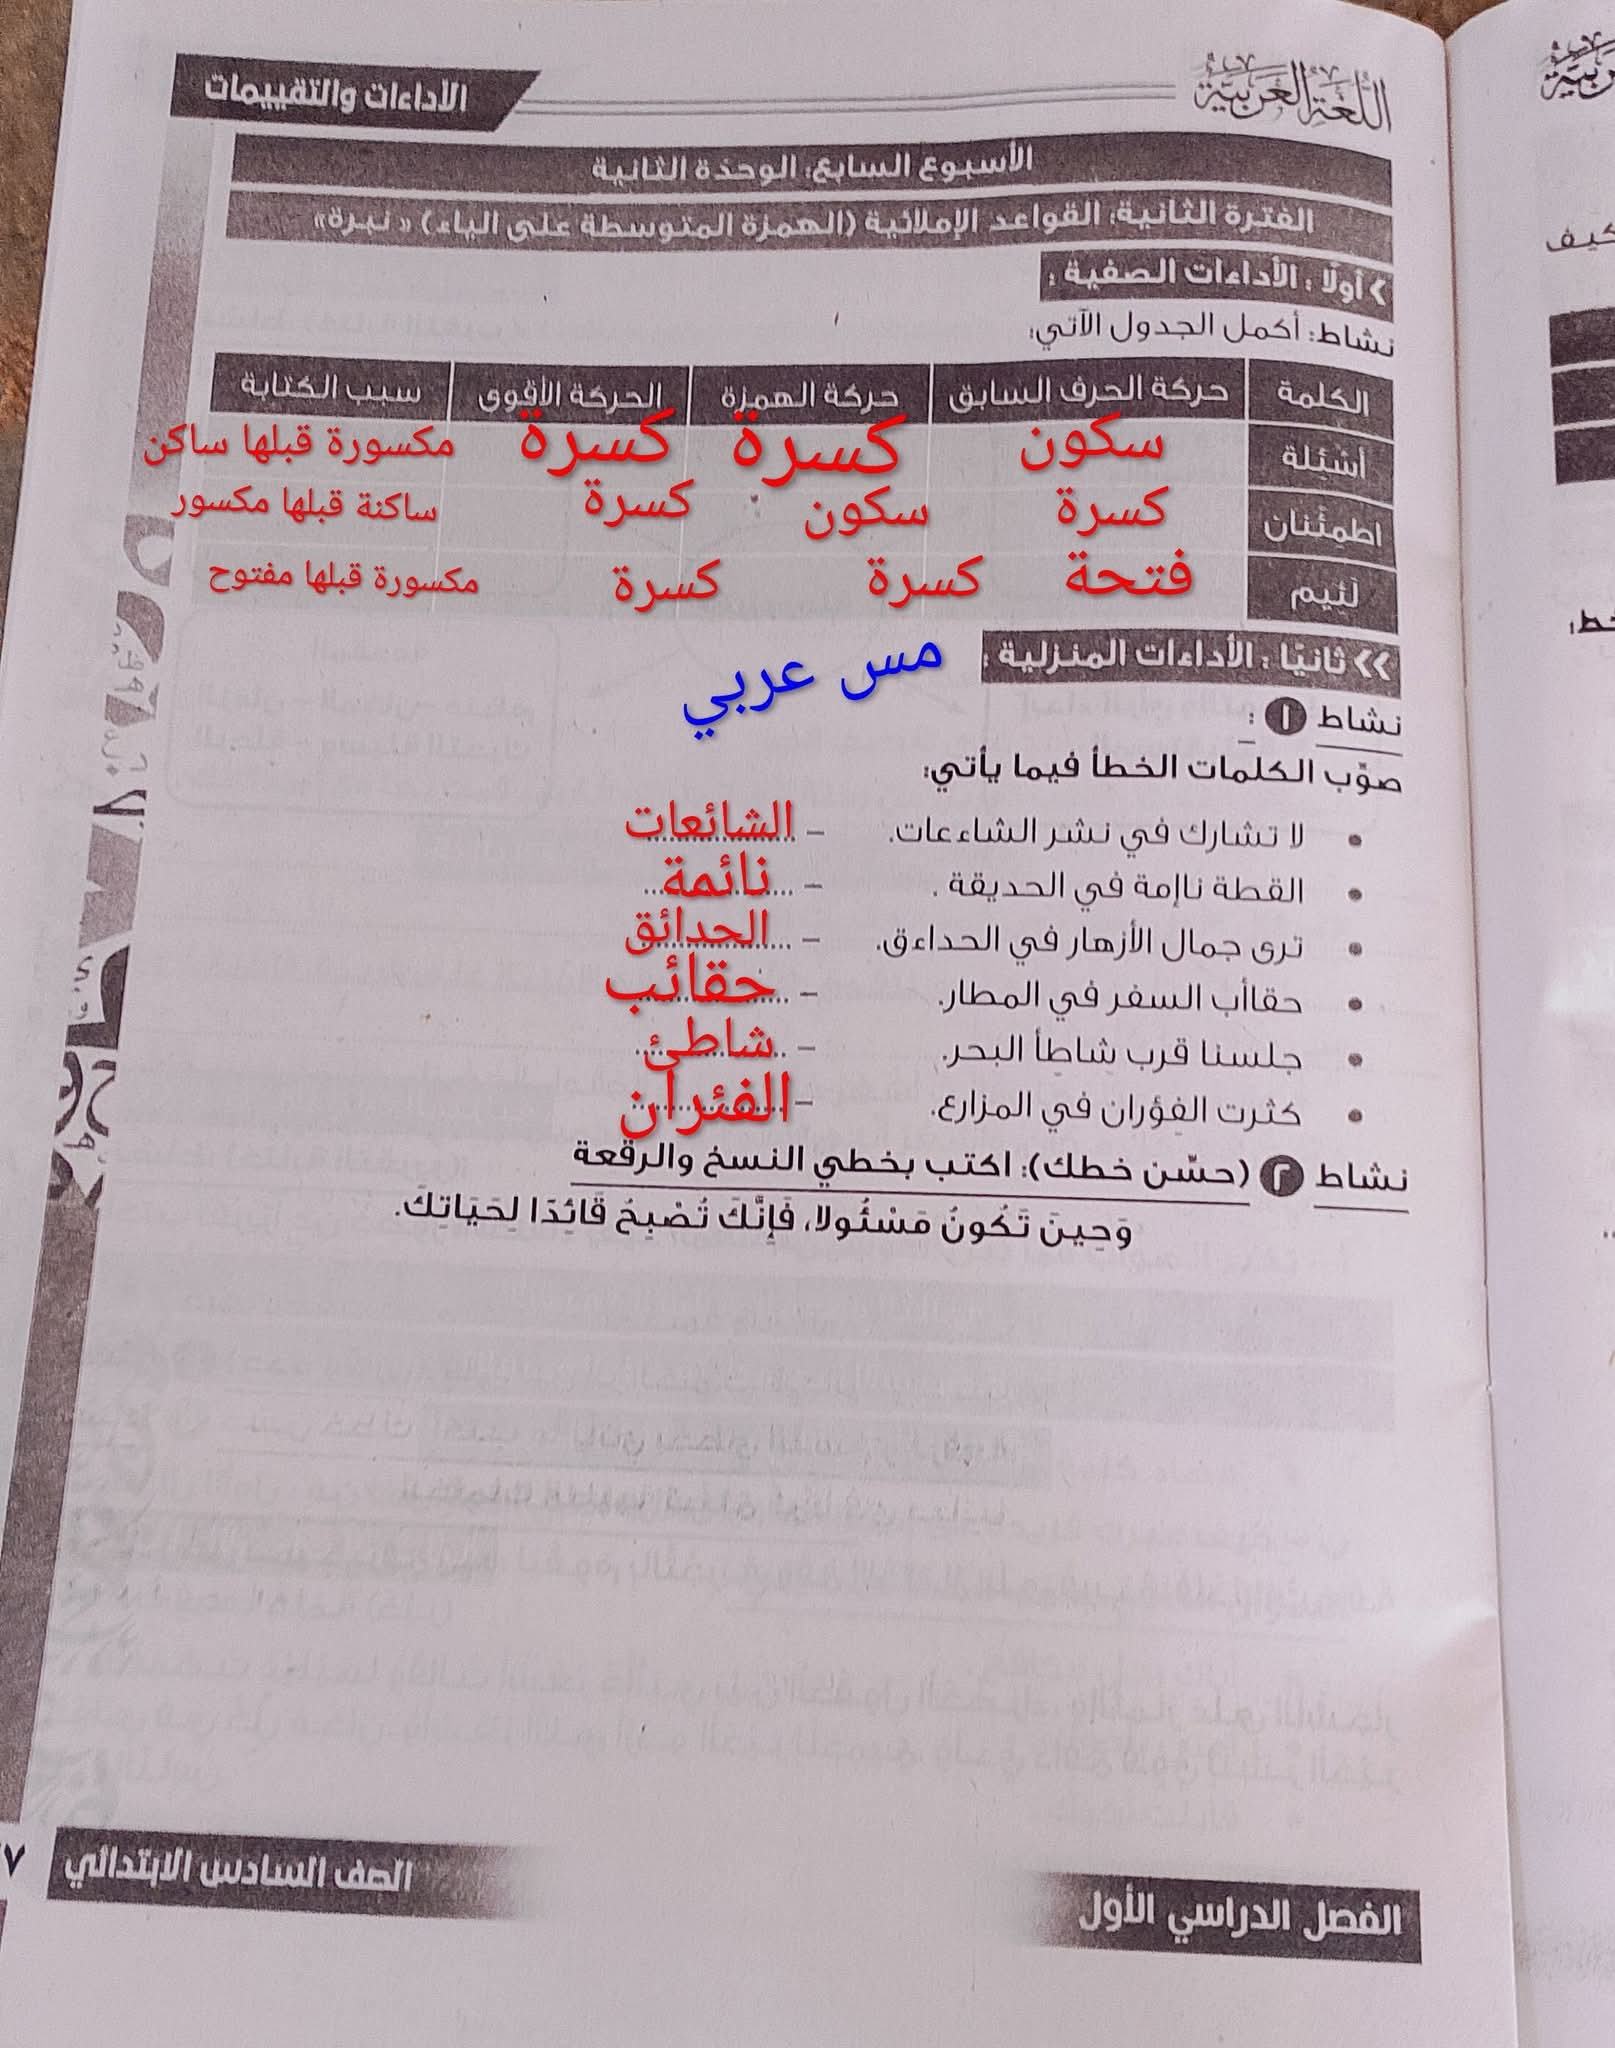 اللُّغَةُ العَرَبِيَّةُ
الأداءات والتقييمات
الأسبوع السابع: الوحدة الثانية
الفترة الثانية: القواعد الإملائية (الهمزة المتوسطة على الياء) « نبرة»
أولًا : الأداءات الصفية :
نشاط: أكمل الجدول الآتي:
الكلمة حركة الحرف السابق حركة الهمزة الحركة الأقوى سبب الكتابة
أسْئِلة سكون كسرة كسرة مكسورة قبلها ساكن
اطمِئْنان كسرة سكون كسرة ساكنة قبلها مكسور
لَئِيم فتحة كسرة كسرة مكسورة قبلها مفتوح
ثانيًا : الأداءات المنزلية :
مس عربي
نشاط ١ :
صوِّب الكلمات الخطأ فيما يأتي:
• لا تشارك في نشر الشاءعات. – الشائعات
• القطة ناإمة في الحديقة . – نائمة
• ترى جمال الأزهار في الحداءق. – الحدائق
• حقاأب السفر في المطار. – حقائب
• جلسنا قرب شاطِأ البحر. – شاطئ
• كثرت الفِؤران في المزارع. – الفئران
نشاط ٢ (حسِّن خطك): اكتب بخطي النسخ والرقعة
وَحِينَ تَكُونُ مَسْئُولا، فَإِنَّكَ تُصْبِحُ قَائِدًا لِحَيَاتِكَ.
الفصل الدراسي الأول
الصف السادس الابتدائي